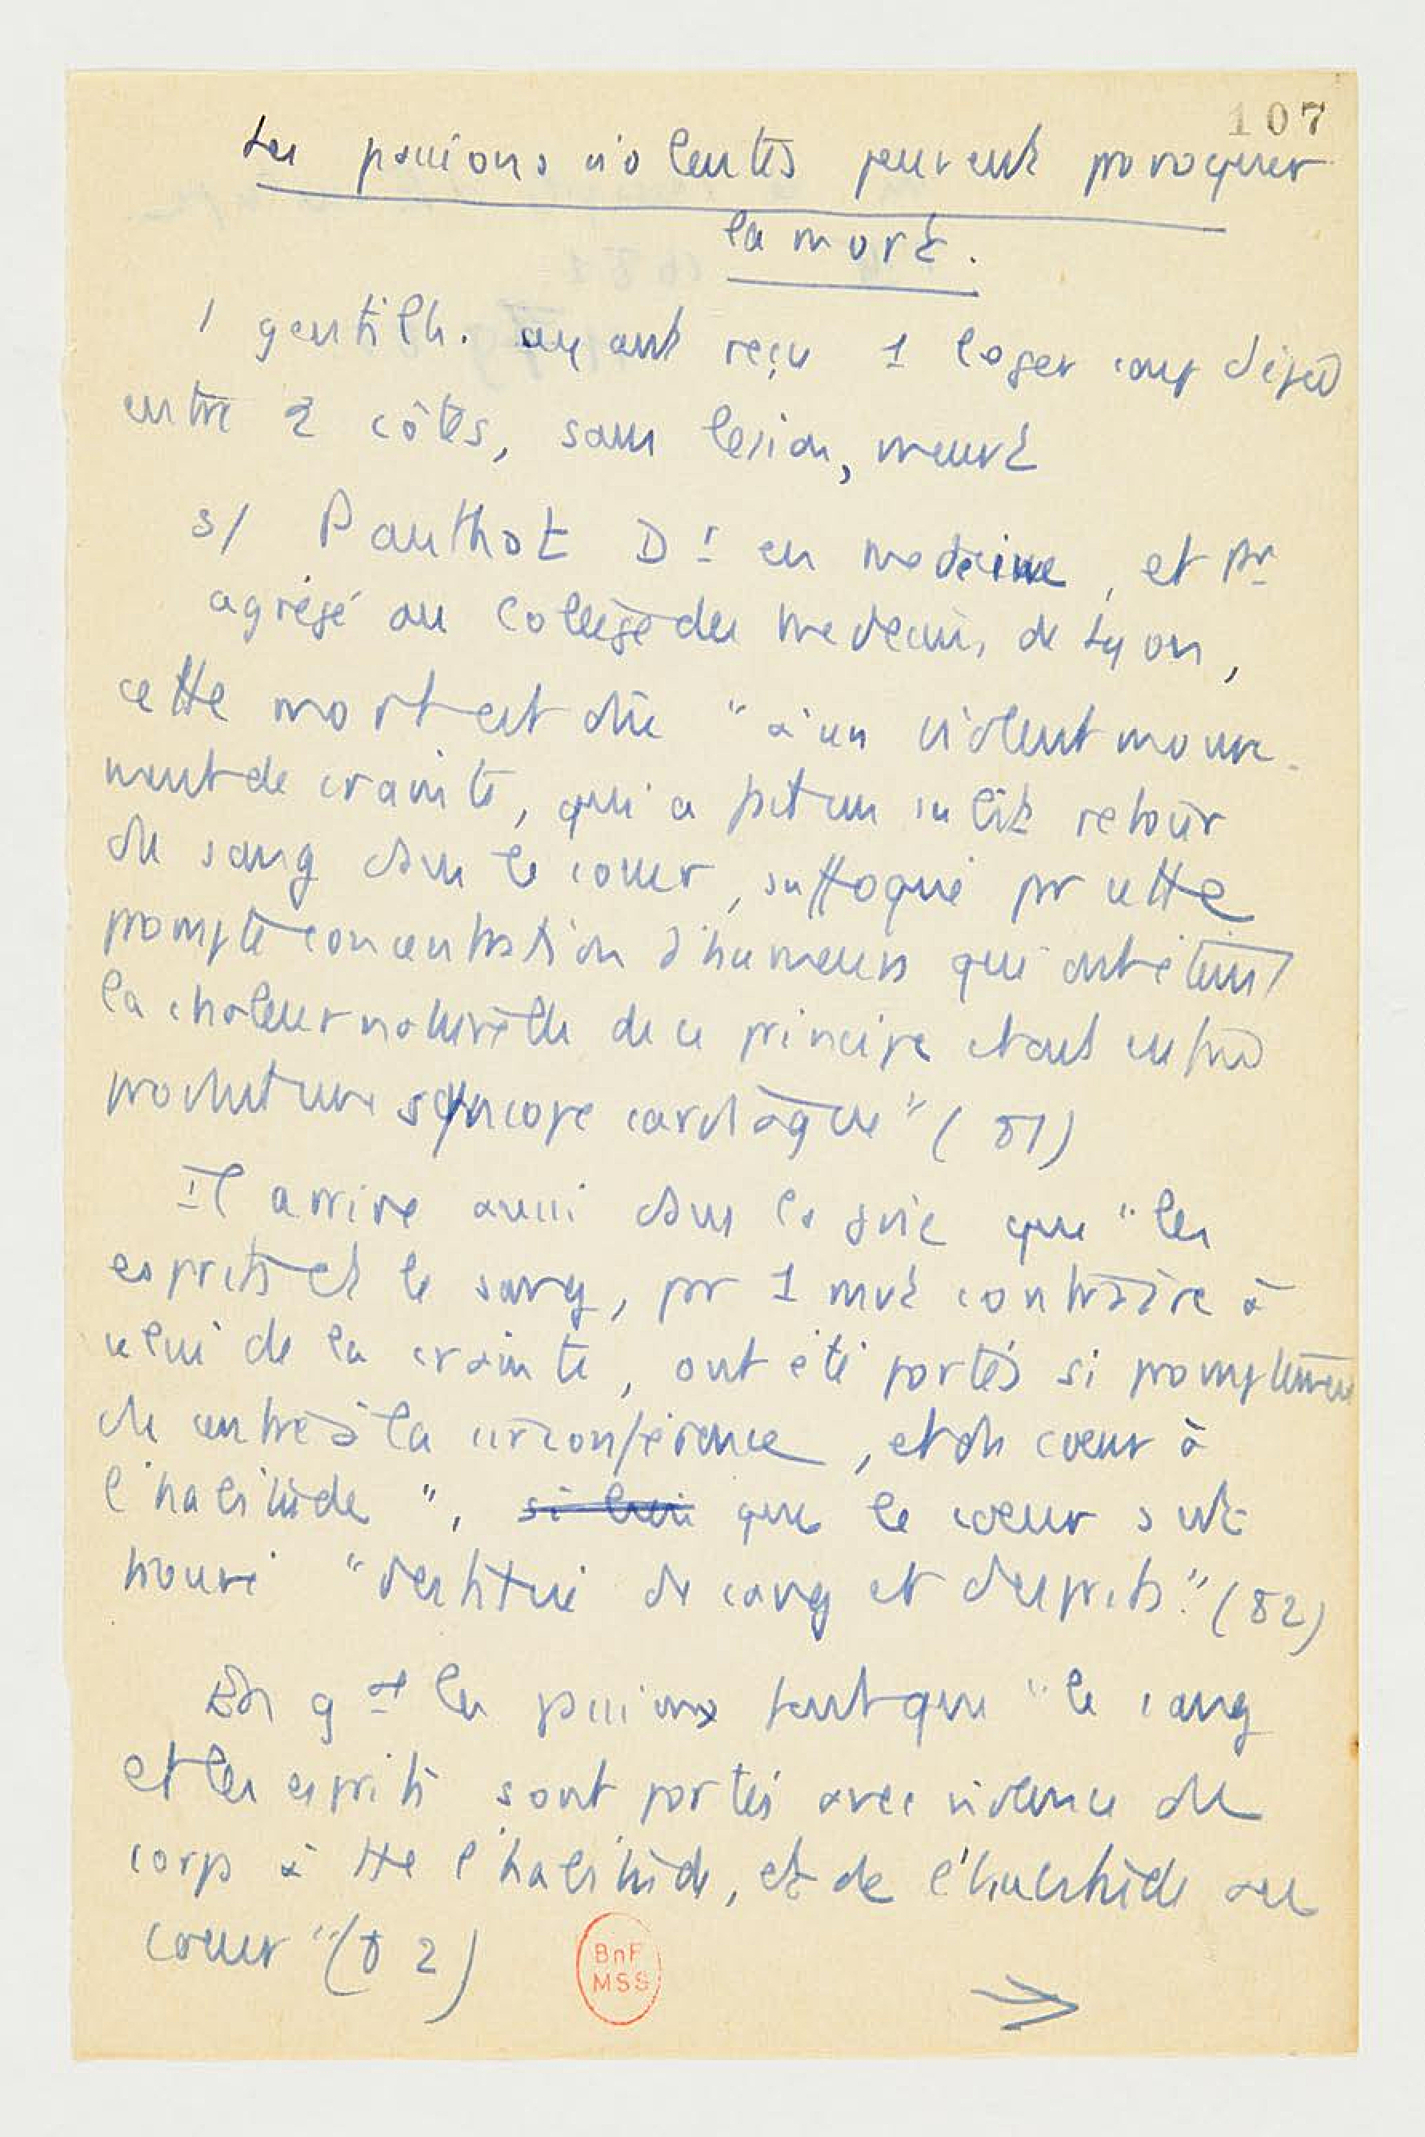 107
Les passions violentes peuvent provoquer
la mort.
1 gentilh. ayant reçu 1 léger coup d'épée
entre 2 côtes, sans lésion, meurt
s/ Panthot Dr en medecine, et pr
agrégé au Collège des medecins de Lyon,
cette mort est dûe "à un violent mouve-
ment de crainte, qui a fait un subit retour
du sang dans le coeur, suffoqué par cette
prompte concentration d'humeurs qui ont éteint
la chaleur naturelle de ce principe et ont enfin
produit une syncope cardiaque" (81)
Il arrive aussi dans la joie que "les
esprits et le sang, par 1 mvt contraire à
celui de la crainte, ont été portés si promptement
du centre à la circonférence, et du coeur à
l'habitude", que le coeur s'est
trouvé "destitué de sang et d'esprits." (82)
En gal les passions font que "le sang
et les esprits sont portés avec violence du
corps à tte l'habitude, et de l'habitude au
coeur" (82)
BnF
MSS